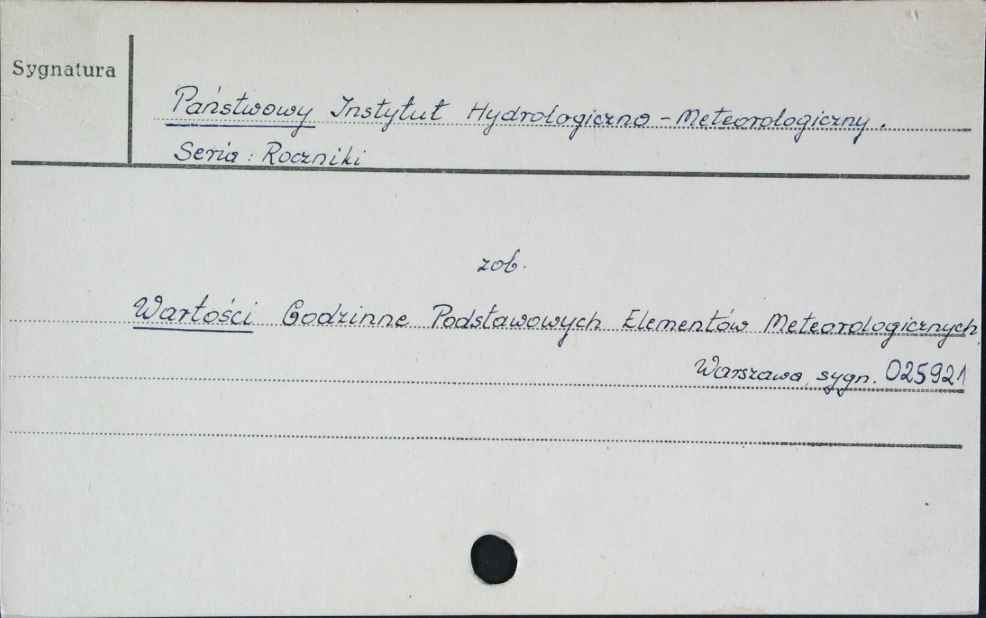 Sygnatura
Państwowy Instytut Hydrologiczno-Meteorologiczny.
Seria: Roczniki
zob.
Wartości Godzinne Podstawowych Elementów Meteorologicznych
Warszawa, sygn. 025921